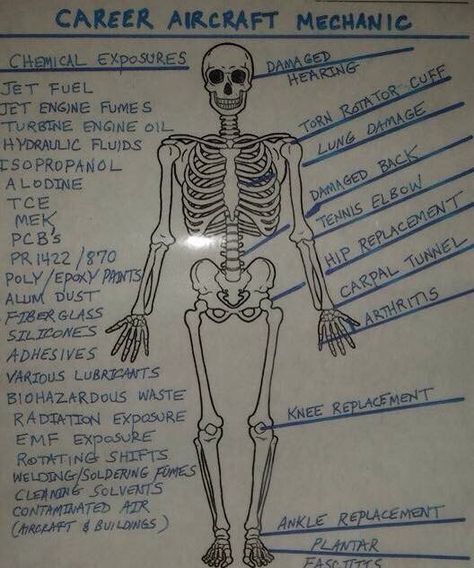 CAREER AIRCRAFT MECHANIC
CHEMICAL EXPOSURES
JET FUEL
JET ENGINE FUMES
TURBINE ENGINE OIL
HYDRAULIC FLUIDS
ISOPROPANOL
ALODINE
TCE
MEK
PCB's
PR1422/870
POLY/EPOXY PAINTS
ALUM DUST
FIBERGLASS
SILICONES
ADHESIVES
VARIOUS LUBRICANTS
BIOHAZARDOUS WASTE
RADIATION EXPOSURE
EMF EXPOSURE
ROTATING SHIFTS
WELDING/SOLDERING FUMES
CLEANING SOLVENTS
CONTAMINATED AIR
(AIRCRAFT & BUILDINGS)
DAMAGED
HEARING
TORN ROTATOR CUFF
LUNG DAMAGE
DAMAGED BACK
TENNIS ELBOW
HIP REPLACEMENT
CARPAL TUNNEL
ARTHRITIS
KNEE REPLACEMENT
ANKLE REPLACEMENT
PLANTAR
FASCITIS